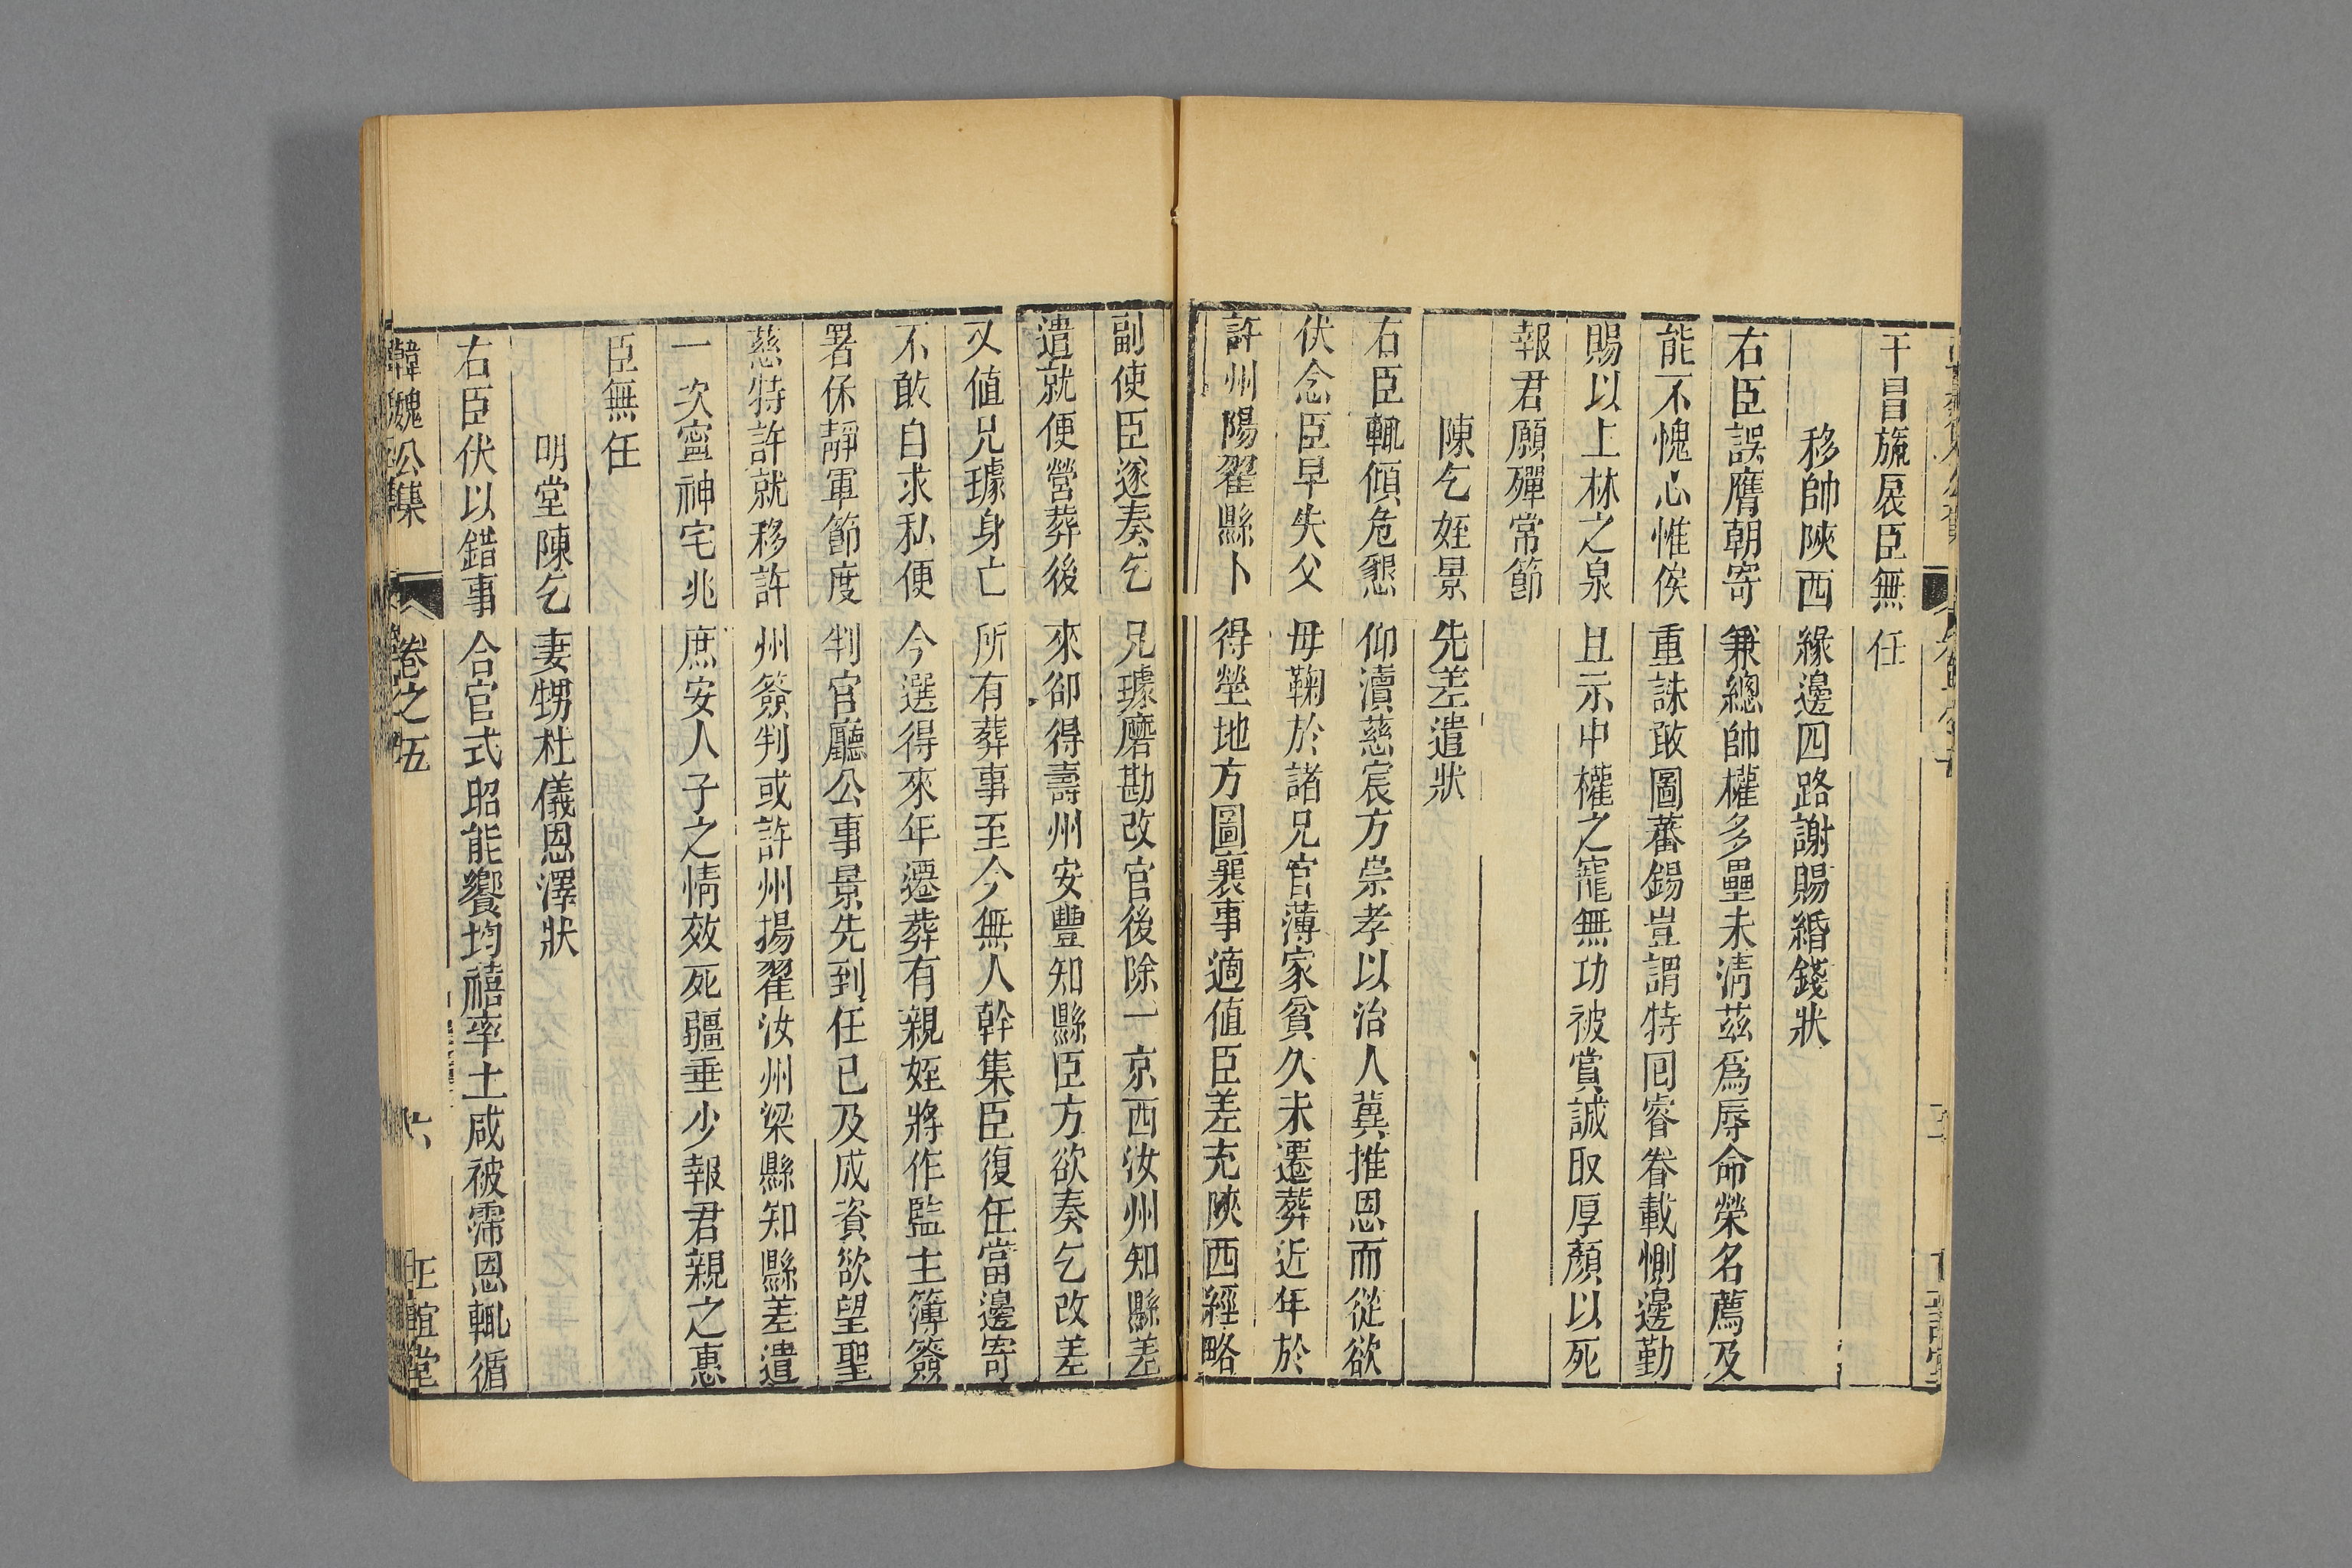 干冒旒扆臣無任
移帥陝西緣邊四路謝賜緡錢狀
右臣誤膺朝寄兼總帥權多壘未淸茲爲辱命榮名薦及
能不愧心惟俟重誅敢圖蕃錫豈謂特囘睿眷載惻邊勤
賜以上林之泉且示中權之寵無功被賞誠取厚顏以死
報君願殫常節
陳乞姪景先差遣狀
右臣輒傾危懇仰瀆慈宸方崇孝以治人冀推恩而從欲
伏念臣早失父母鞠於諸兄官薄家貧久未遷葬近年於
許州陽翟縣卜得塋地方圖襄事適值臣差充陝西經略
副使臣遂奏乞兄璩磨勘改官後除一京西汝州知縣差
遣就便營葬後來卻得壽州安豐知縣臣方欲奏乞改差
又値兄璩身亡所有葬事至今無人幹集臣復任當邊寄
不敢自求私便今選得來年遷葬有親姪將作監主簿簽
署保靜軍節度判官廳公事景先到任已及成資欲望聖
慈特許就移許州簽判或許州揚翟汝州梁縣知縣差遣
一次寧神宅兆庶安人子之情效死疆垂少報君親之惠
臣無任
明堂陳乞妻甥杜儀恩澤狀
右臣伏以錯事合官式昭能饗均禧率土咸被霈恩輒循
韓魏公集 卷之五 六 正誼堂